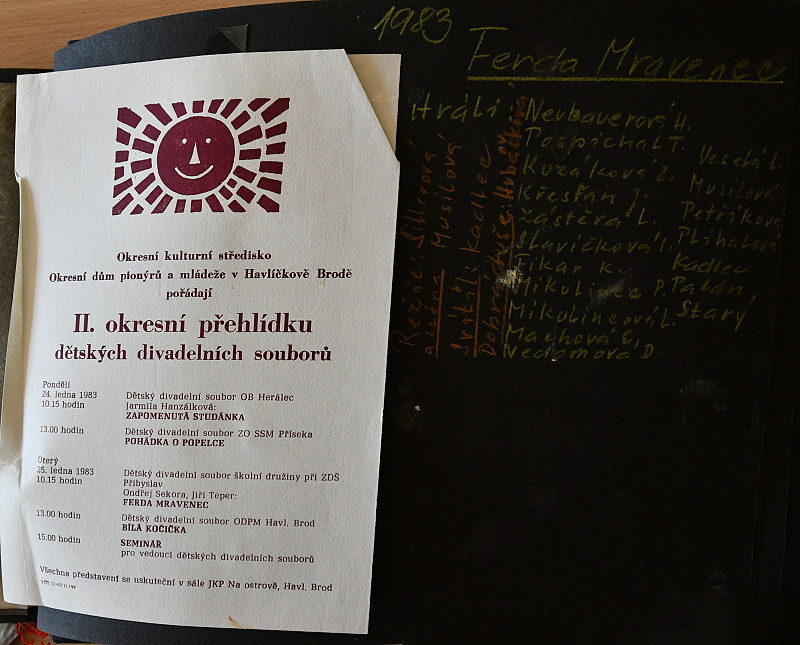 Okresní kulturní středisko
Okresní dům pionýrů a mládeže v Havlíčkově Brodě
pořádají
II. okresní přehlídku
dětských divadelních souborů
Pondělí
24. ledna 1983 Dětský divadelní soubor OB Herálec
10.15 hodin Jarmila Hanzálková:
ZAPOMENUTÁ STUDÁNKA
13.00 hodin Dětský divadelní soubor ZO SSM Příseka
POHÁDKA O POPELCE
Úterý
25. ledna 1983 Dětský divadelní soubor školní družiny při ZDŠ
10.15 hodin Přibyslav
Ondřej Sekora, Jiří Teper:
FERDA MRAVENEC
13.00 hodin Dětský divadelní soubor ODPM Havl. Brod
BÍLÁ KOČIČKA
15.00 hodin SEMINÁŘ
pro vedoucí dětských divadelních souborů
Všechna představení se uskuteční v sále JKP Na ostrově, Havl. Brod
1983
Ferda Mravenec
Hráli: Neubauerová H.
Pospíchal T.
Kuzálková Z.
Křesťan J.
Zástěra L.
Slavíčková I.
Fikar K.
Mikulinec P.
Mikulincová L.
Machová E.
Nedomová D.
Veselá L.
Musilová
Petříková
Plíhalová
Kadlec
Pagán,
Starý
Režie: Sillerová
Musilová
Svítil: Kadlec